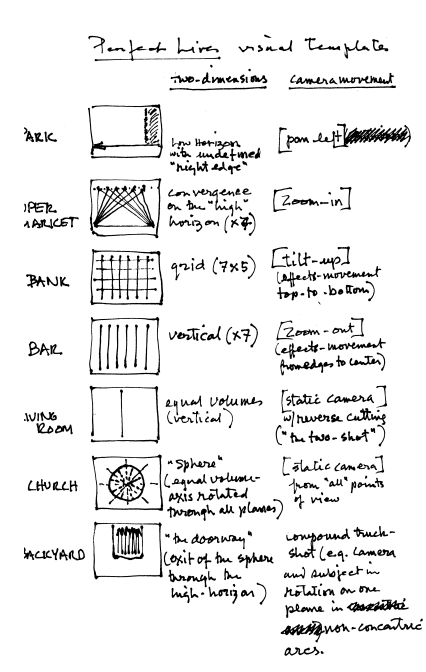 Perfect Lives visual templates
two-dimensions
camera movement
ARK
low horizon
with undefined
"right edge"
[pan-left]
PER
MARKET
convergence
on the "high"
horizon (x7)
[zoom-in]
BANK
grid (7x5)
[tilt-up]
(effects-movement
top-to-bottom)
BAR
vertical (x7)
[zoom-out]
(effects-movement
from edges to center)
IVING
ROOM
equal volumes
(vertical)
[static camera]
w/reverse cutting
("the two-shot")
CHURCH
"sphere"
(equal volume-
axis rotated
through all planes)
[static camera]
from "all" points
of view
BACKYARD
"the doorway"
(exit of the sphere
through the
high-horizon)
compound truck-
shot (e.g. camera
and subject in
rotation on one
plane in
non-concentric
arcs.